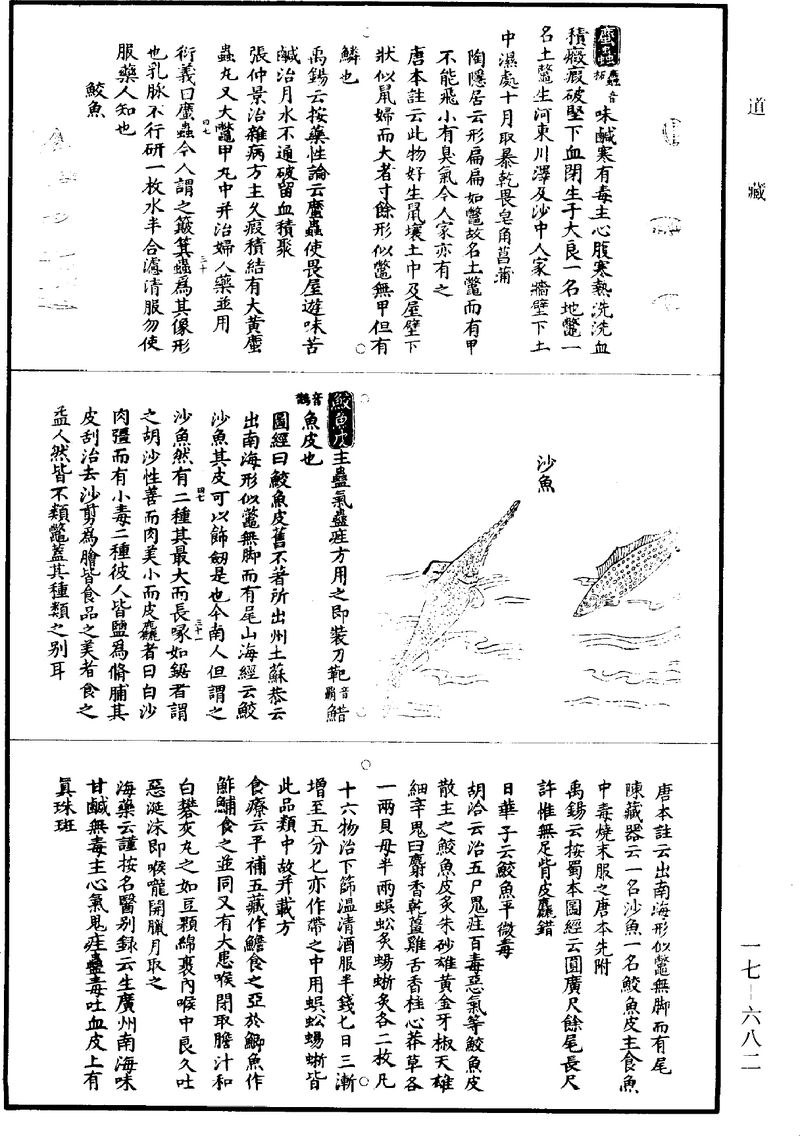 道藏
䗪蟲 音柘 味鹹寒有毒主心腹寒熱洗洗血
積癥瘕破堅下血閉生子大良一名地鱉一
名土鱉生河東川澤及沙中人家牆壁下土
中濕處十月取暴乾畏皂角菖蒲
陶隱居云形扁扁如鱉故名土鱉而有甲
不能飛小有臭氣今人家亦有之
唐本註云此物好生鼠壤土中及屋壁下
狀似鼠婦而大者寸餘形似鱉無甲但有
鱗也
禹錫云按藥性論云䗪蟲使畏屋遊味苦
鹹治月水不通破留血積聚
張仲景治雜病方主久瘕積結有大黃䗪
蟲丸又大鱉甲丸中并治婦人藥並用
四七
三十
衍義曰䗪蟲今人謂之簸箕蟲爲其像形
也乳脉不行研一枚水半合濾清服勿使
服藥人知也
鮫魚
沙魚
鮫魚皮 主蠱氣蠱疰方用之即裝刀靶 音霸 䱜
音鵲 魚皮也
圖經曰鮫魚皮舊不著所出州土蘇恭云
出南海形似鱉無脚而有尾山海經云鮫
沙魚其皮可以飾劒是也今南人但謂之
四七
三十一
沙魚然有二種其最大而長喙如鋸者謂
之胡沙性善而肉美小而皮麤者曰白沙
肉彊而有小毒二種彼人皆鹽爲脩脯其
皮刮治去沙剪爲膾皆食品之美者食之
益人然皆不類鱉蓋其種類之别耳
唐本註云出南海形似鱉無脚而有尾
陳藏器云一名沙魚一名鮫魚皮主食魚
中毒燒末服之唐本先附
禹錫云按蜀本圖經云圓廣尺餘尾長尺
許惟無足背皮麤錯
日華子云鮫魚平微毒
胡洽云治五尸鬼疰百毒惡氣等鮫魚皮
散主之鮫魚皮炙朱砂雄黃金牙椒天雄
細辛鬼臼麝香乾薑雞舌香桂心莽草各
一兩貝母半兩蜈蚣炙蜴蜥炙各二枚凡
十六物治下篩溫清酒服半錢匕日三漸
增至五分匕亦作帶之中用蜈蚣蜴蜥皆
此品類中故并載方
食療云平補五藏作鱠食之亞於鯽魚作
鮓鯆食之並同又有大患喉閉取膽汁和
白礬灰丸之如豆顆綿裹內喉中良久吐
惡涎沫即喉嚨開臘月取之
海藥云謹按名醫别録云生廣州南海味
甘鹹無毒主心氣鬼疰蠱毒吐血皮上有
真珠斑
一七-六八二